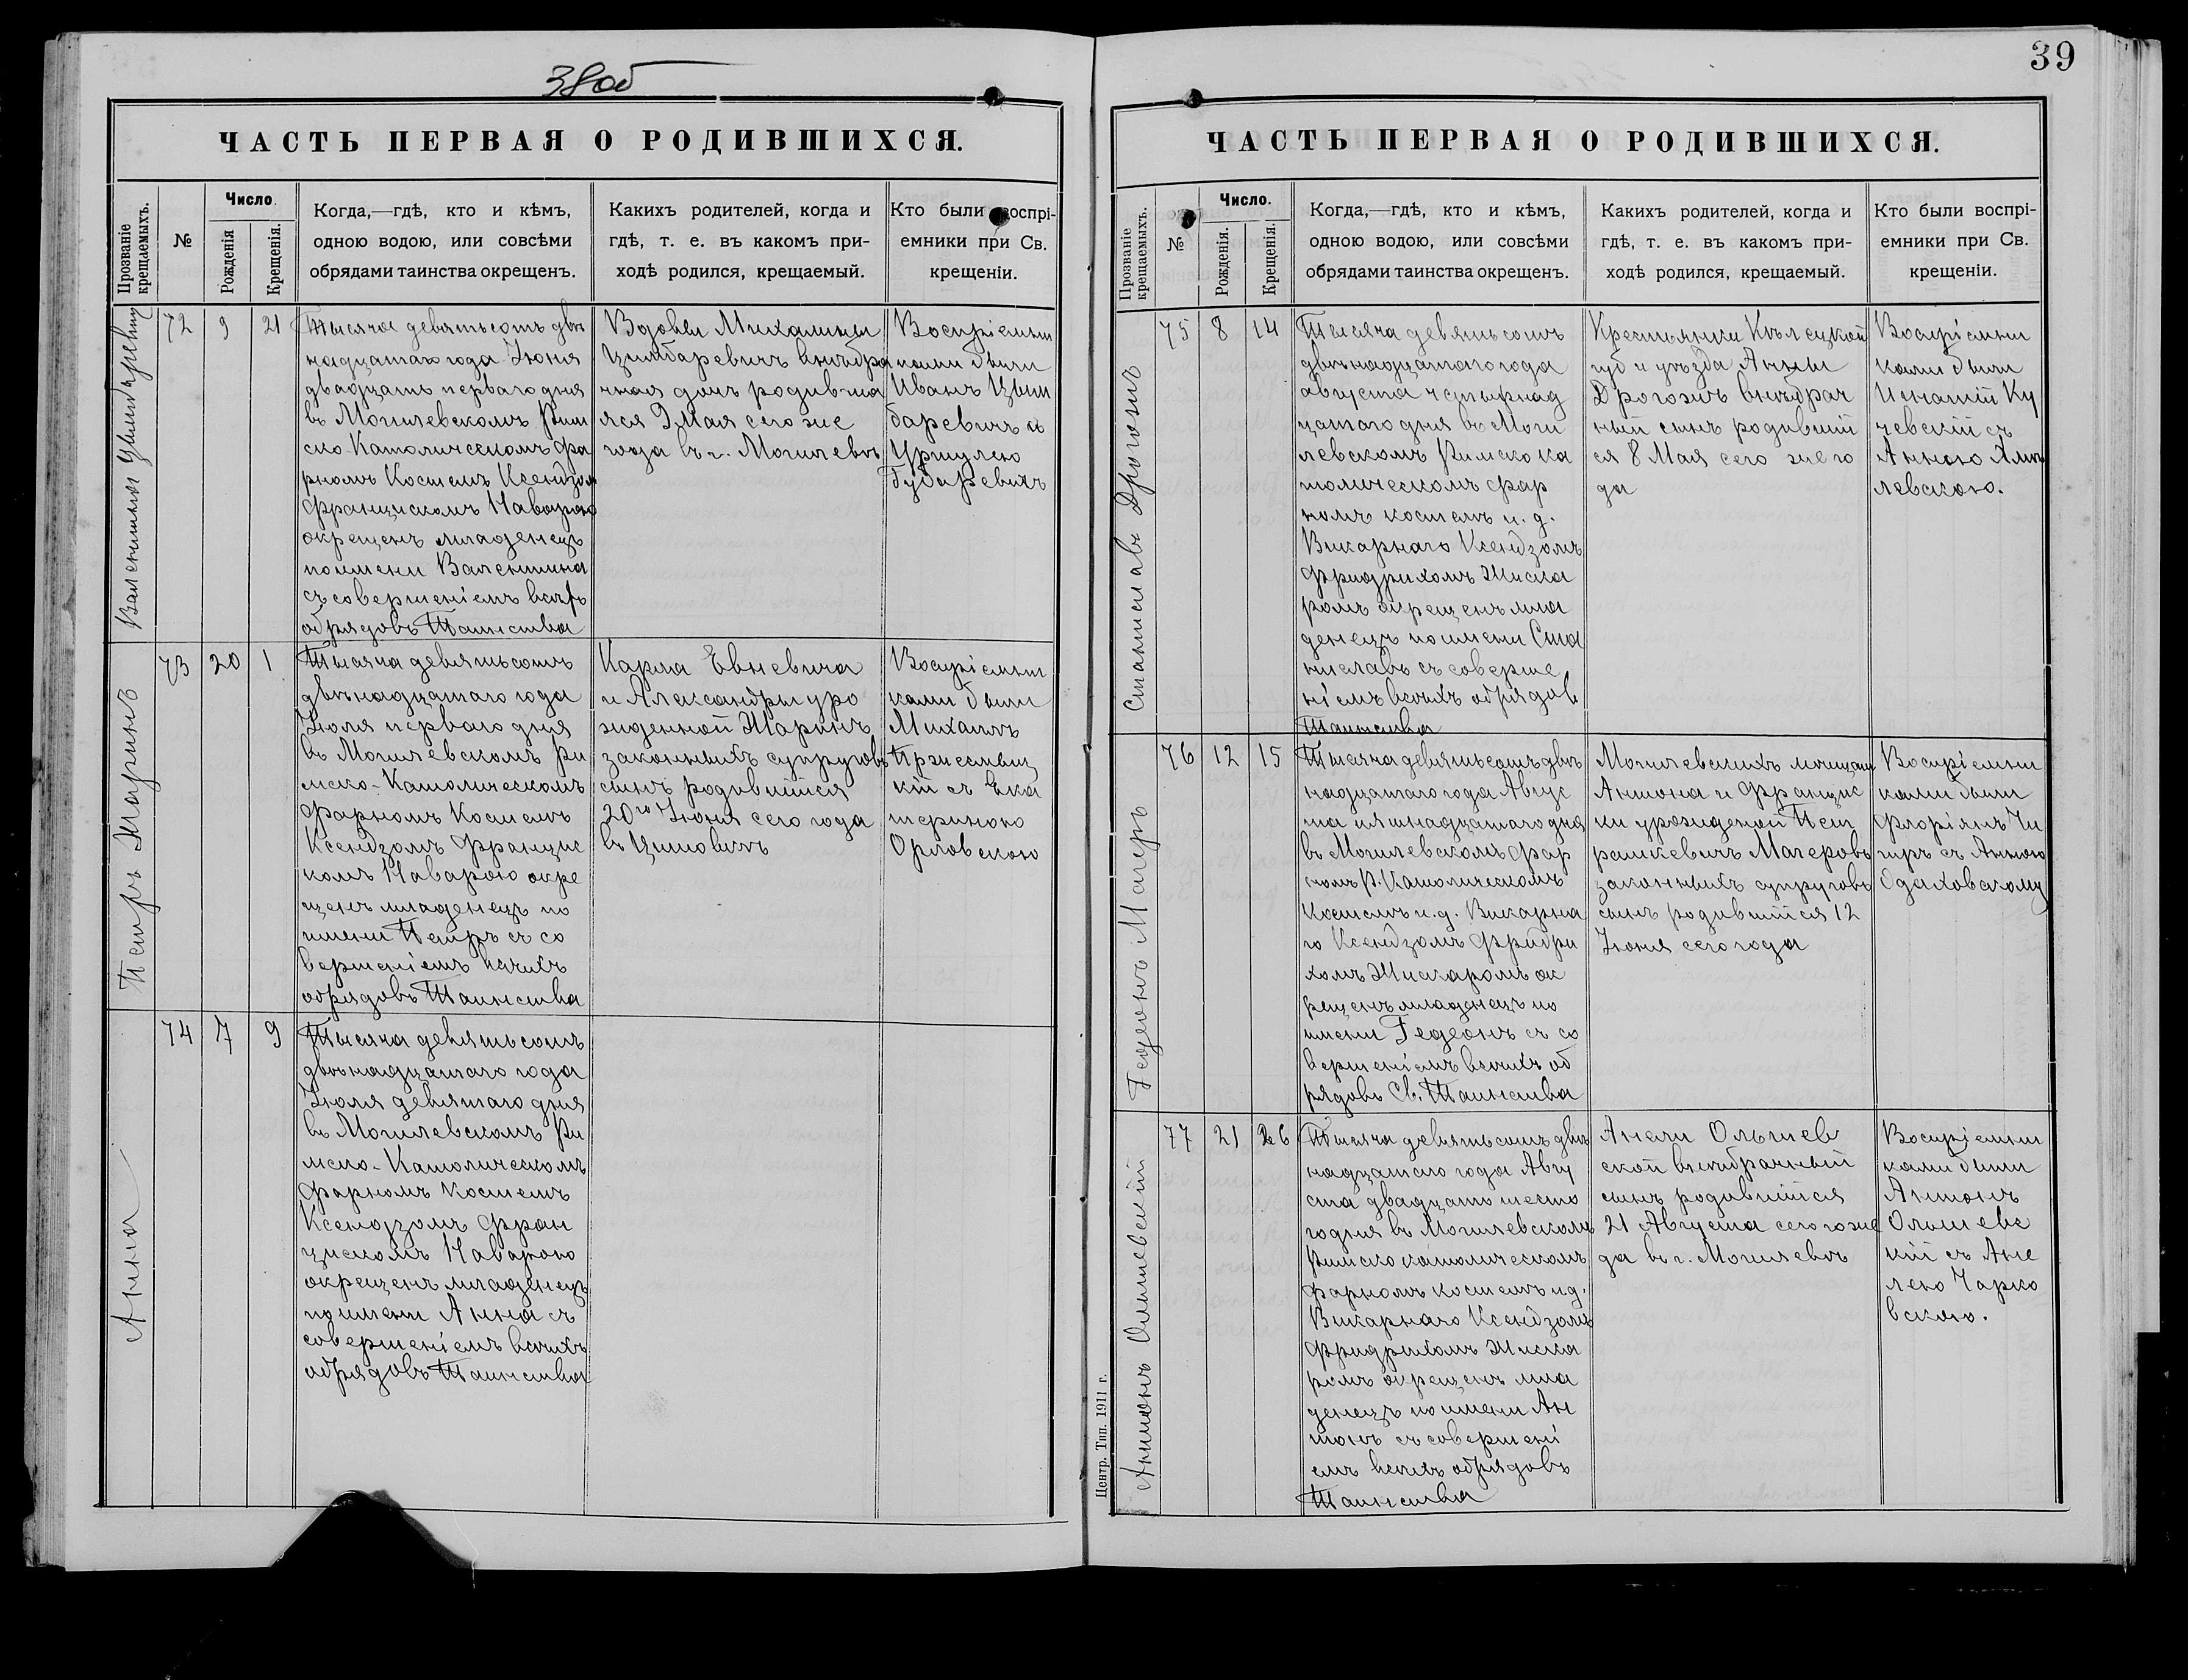 38об
ЧАСТЬ ПЕРВАЯ О РОДИВШИХСЯ.
Прозваніе крещаемыхъ.
№
Число.
Рожденія
Крещенія.
Когда,—гдѣ, кто и кѣмъ,
одною водою, или совсѣми
обрядами таинства окрещенъ.
Какихъ родителей, когда и
гдѣ, т. е. въ какомъ при-
ходѣ родился, крещаемый.
Кто были воспрі-
емники при Св.
крещеніи.
Валентина Цимбаревичъ
72
9
21
Тысяча девятьсотъ двѣ
надцатаго года Іюня
двадцать перваго дня
въ Могилевскомъ Рим
ско-Католическомъ фа
рномъ Костелѣ Ксендзомъ
Францискомъ Наварою
окрещенъ младенецъ
по имени Валентина
съ совершеніемъ всѣхъ
обрядовъ Таинства
Вдовы Михалины
Цимбаревичъ внѣбра
чная дочь родив-ша
яся 9 Мая сего же
года въ г. Могилевѣ
Воспріемни
ками были
Иванъ Цим
баревичъ и
Уршулею
Бубаревичъ
Петръ Жаринъ
73
20
1
Тысяча девятьсотъ
двѣнадцатаго года
Іюля перваго дня
въ Могилевскомъ Ри
мско-Католическомъ
фарномъ Костелѣ
Ксендзомъ Францис
комъ Наварою окре
щенъ младенецъ по
имени Петръ съ со
вершеніемъ всѣхъ
обрядовъ Таинства
Карла Евневича
и Александры уро
жденной Жаринъ
законныхъ супруговъ
сынъ родившійся
20го Іюня сего года
Воспріемни
ками были
Михаилъ
съ Ека
териною
Орловскою
Анна
74
7
9
Тысяча девятьсотъ
двѣнадцатаго года
Іюля девятаго дня
въ Могилевскомъ Ри
мско-Католическомъ
фарномъ Костелѣ
Ксендзомъ Фран
цискомъ Наварою
окрещенъ младенецъ
по имени Анна съ
совершеніемъ всѣхъ
обрядовъ Таинства
39
ЧАСТЬ ПЕРВАЯ О РОДИВШИХСЯ.
Прозваніе крещаемыхъ.
№
Число.
Рожденія.
Крещенія.
Когда,—гдѣ, кто и кѣмъ,
одною водою, или совсѣми
обрядами таинства окрещенъ.
Какихъ родителей, когда и
гдѣ, т. е. въ какомъ при-
ходѣ родился, крещаемый.
Кто были воспрі-
емники при Св.
крещеніи.
Станиславъ Дрогозъ
75
8
14
Тысяча девятьсотъ
двѣнадцатаго года
августа четырнад
цатаго дня въ Моги
левскомъ Римско ка
толическомъ фар
номъ костелѣ и. д.
Викарнаго Ксендзомъ
Фридрихомъ Жиска
ромъ окрещенъ мла
денецъ по имени Ста
ниславъ съ соверше
ніемъ всѣхъ обрядовъ
Таинства
Крестьянки Кѣлецкой
губ и уѣзда Анны
Дрогозъ внѣбрач
ный сынъ родивший
ся 8 Мая сего же го
да
Воспріемни
ками были
Игнатій Ку
чевскій съ
Анною
левскою.
Гедеонъ Магеръ
76
12
15
Тысяча девятьсотъ двѣ
надцатаго года Авгус
та пятнадцатаго дня
въ Могилевскомъ фар
номъ Р. Католическомъ
Костелѣ и. д. Викарна
го Ксендзомъ Фридри
хомъ Жискаромъ ок
рещенъ младенецъ по
имени Гедеонъ съ со
вершеніемъ всѣхъ об
рядовъ Св. Таинства
Могилевскихъ мѣщан
Антона и Францис
ки урожденой Пет
рашкевичъ Магеровъ
законныхъ супруговъ
сынъ родившійся 12
Іюня сего года
Воспріемни
ками были
Флоріянъ
съ Анною
Антонъ Ольшевскій
77
21
26
Тысяча девятьсотъ двѣ
надцатаго года Авгу
ста двадцать шесто
го дня въ Могилевскомъ
Римско католическомъ
фарномъ костелѣ и. д.
Викарнаго Ксендзомъ
Фридрихомъ Жиска
ромъ окрещенъ мла
денецъ по имени Ан
тонъ съ совершені
емъ всѣхъ обрядовъ
Таинства
Анели Ольшев
ской внѣбрачный
сынъ родившійся
21 Августа сего же го
да въ г. Могилевѣ
Воспріемни
ками были
Антонъ
Ольшевс
кій съ Ане
лею Чарко
вскою.
Центр. Тип. 1911 г.